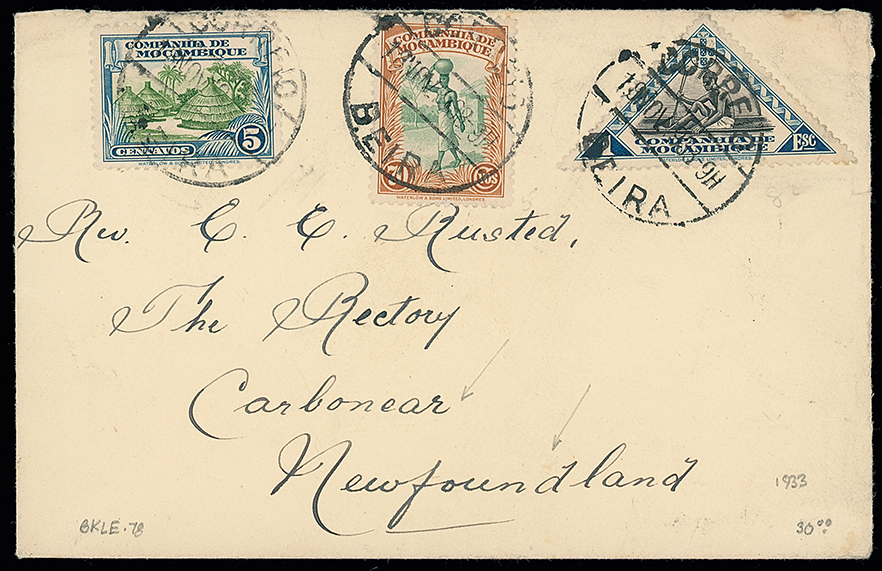 COMPANHIA DE
MOÇAMBIQUE
5
CENTAVOS
WATERLOW & SONS LIMITED, LONDRES.
COMPANHIA DE
MOÇAMBIQUE
WATERLOW & SONS LIMITED, LONDRES.
BEIRA
CORREIO
COMPANHIA DE
MOÇAMBIQUE
ESC
BEIRA
Rev. C. C. Rusted,
The Rectory
Carbonear
Newfoundland
1933
BKLE.78
30⁰⁰